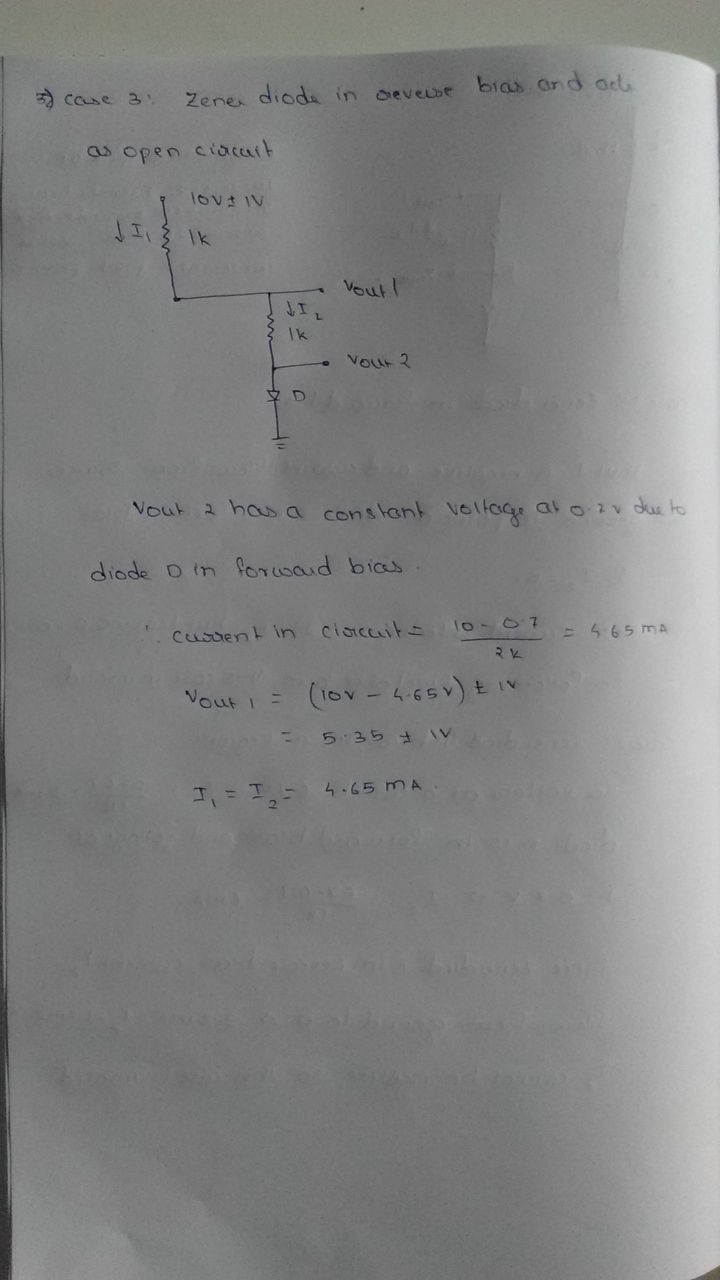 3) case 3: Zener diode in reverse bias and acts
as open circuit
10V ± 1V
↓ I1 1k
Vout 1
↓ I2
1k
Vout 2
D
Vout 2 has a constant voltage at 0.7v due to
diode D in forward bias.
∴ current in circuit = 10 - 0.7 / 2k = 4.65 mA
Vout 1 = (10v - 4.65v) ± 1V
= 5.35 ± 1V
I1 = I2 = 4.65 mA.